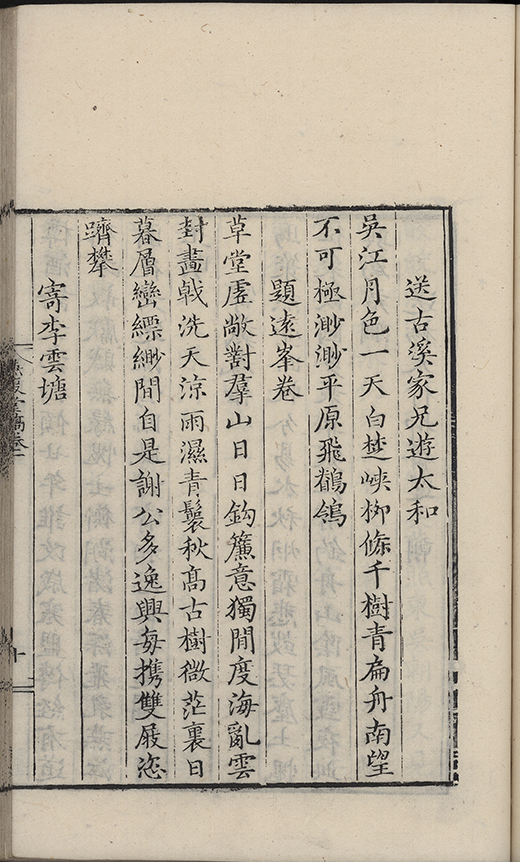 送古溪家兄遊太和
吳江月色一天白楚峽柳條千樹青扁舟南望
不可極渺渺平原飛鶺鴒
題遠峯卷
草堂虛敞對羣山日日鈎簾意獨閒度海亂雲
封畫戟洗天涼雨濕青鬟秋高古樹微茫裏日
暮層巒縹緲間自是謝公多逸興每携雙屐恣
躋攀
寄李雲塘